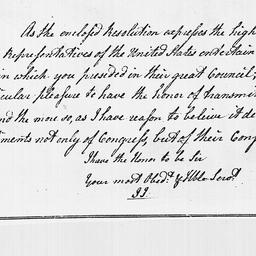 As the enclosed Resolution expresses the high
Representatives of the United States entertain
in which you presided in their great Council;
cular pleasure to have the honor of transmit
and the more so, as I have reason to believe it de
timents not only of Congress, but of their Con
I have the Honor to be Sir
Your most Obed.t & Hble Serv.t
JJ.